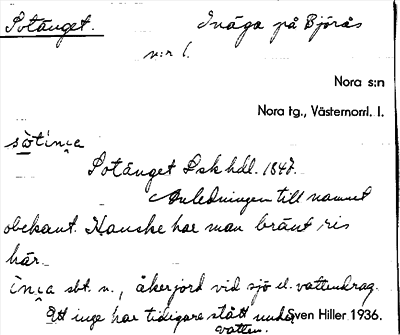 Sotänget. Inäga på Björås
n:r 1.
Nora s:n
Nora tg., Västernorrl. l.
sòtìnɕa
Sotänget Lsk hdl. 1847.
Anledningen till namnet
obekant. Kanske har man bränt ris
här.
ìnɕa sbt. n., åkerjord vid sjö el. vattendrag.
Ett inge har tidigare stått under
vatten.
Sven Hiller 1936.